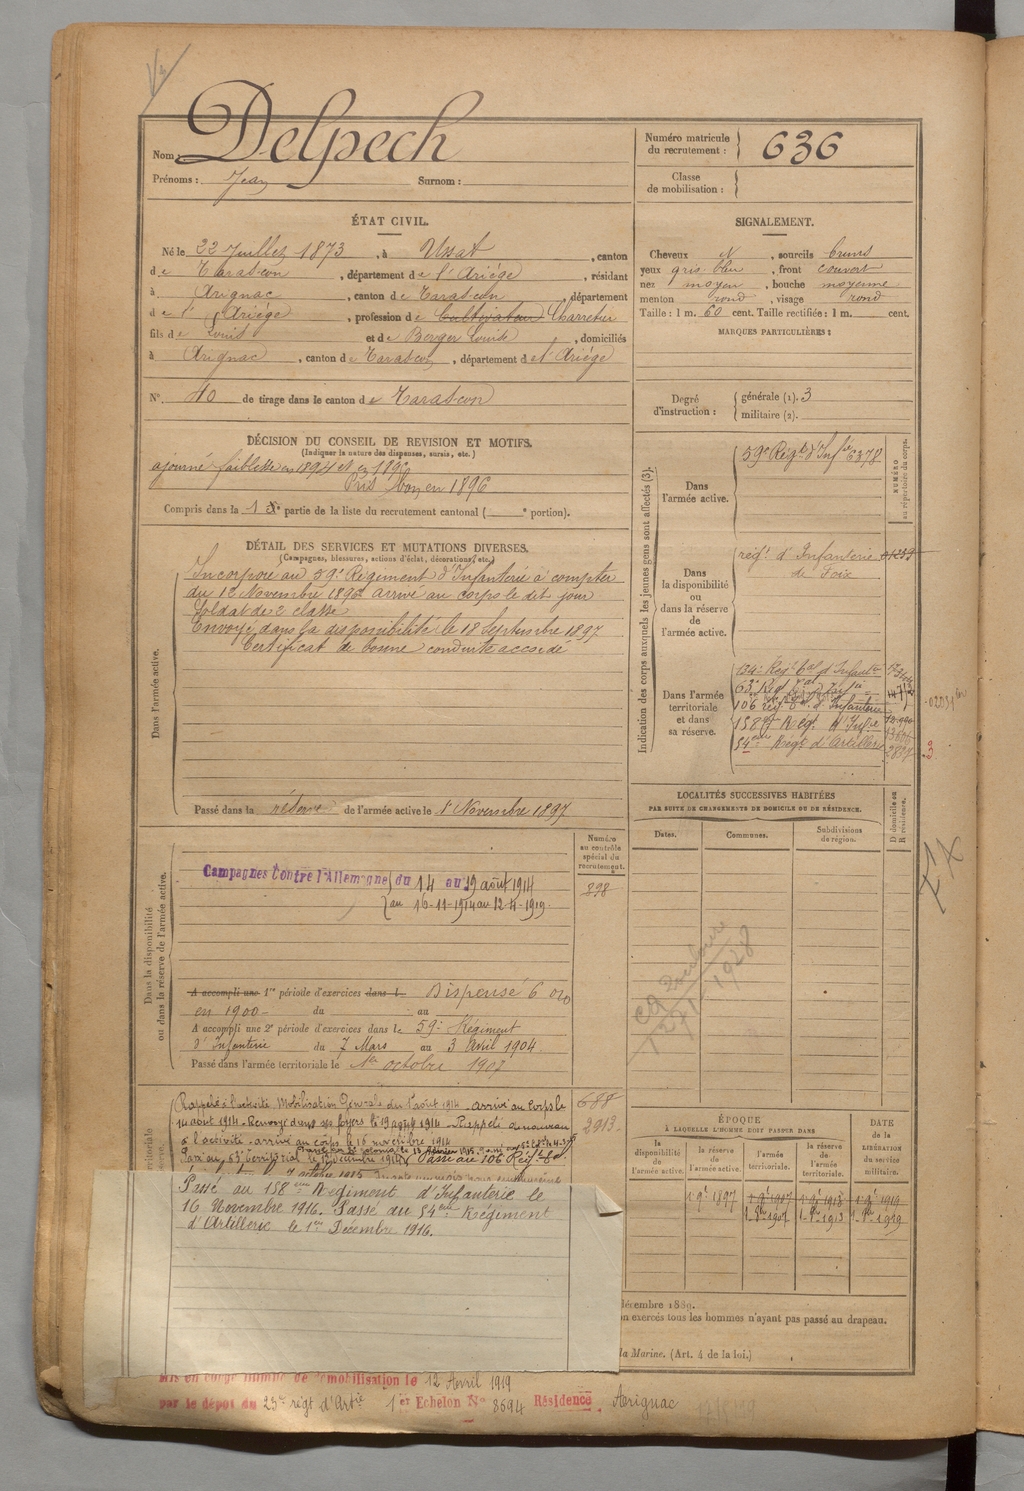 Nom : Delpech
Prénoms : Jean Surnom :
Numéro matricule du recrutement : 636
Classe de mobilisation :
ÉTAT CIVIL.
Né le 22 Juillet 1873, à Ussat, canton
de Tarascon, département de l'Ariége, résidant
à Arignac, canton de Tarascon, département
de l'Ariége, profession de Cultivateur Charretier
fils de Louis et de Berger Louise, domiciliés
à Arignac, canton de Tarascon, département de l'Ariége
N° 40 de tirage dans le canton de Tarascon
SIGNALEMENT.
Cheveux N, sourcils bruns
yeux gris bleu, front couvert
nez moyen, bouche moyenne
menton rond, visage rond
Taille : 1 m. 60 cent. Taille rectifiée : 1 m. cent.
MARQUES PARTICULIÈRES :
Degré d'instruction : générale (1). 3
militaire (2).
DÉCISION DU CONSEIL DE REVISION ET MOTIFS.
(Indiquer la nature des dispenses, sursis, etc.)
ajourné faiblesse en 1894 et en 1895
Pris bon en 1896
Compris dans la 1 re partie de la liste du recrutement cantonal ( e portion).
DÉTAIL DES SERVICES ET MUTATIONS DIVERSES.
(Campagnes, blessures, actions d'éclat, décorations, etc.)
Dans l'armée active.
Incorporé au 59e Régiment d'Infanterie à compter
du 12 Novembre 1896 arrivé au corps le dit jour
Soldat de 2e classe
Envoyé dans la disponibilité le 18 Septembre 1897
Certificat de bonne conduite accordé
Passé dans la réserve de l'armée active le 1 Novembre 1897
Indication des corps auxquels les jeunes gens sont affectés (3).
NUMÉRO au répertoire du corps.
Dans l'armée active.
59e Régt d'Infie 6378
Dans la disponibilité ou dans la réserve de l'armée active.
régt d'Infanterie
de Foix
Dans l'armée territoriale et dans sa réserve.
134e Régt tal d'Infantie
63e Régt tal Infie
106 régt tal d'Infanterie
158e Rég. d'Infie
54eme Régt d'Artillerie
LOCALITÉS SUCCESSIVES HABITÉES
PAR SUITE DE CHANGEMENTS DE DOMICILE OU DE RÉSIDENCE.
Dates. Communes. Subdivisions de région. D domicile ou R résidence.
Dans la disponibilité ou dans la réserve de l'armée active.
Numéro au contrôle spécial du recrutement.
898
Campagnes Contre l'Allemagne du 14 au 19 août 1914
au 16-11-1914 au 12-4-1919.
A accompli une 1re période d'exercices dans l Dispensé 6 0/0
en 1900 du au
A accompli une 2e période d'exercices dans le 59e Régiment
d'Infanterie du 7 Mars au 3 Avril 1904
Passé dans l'armée territoriale le 1er octobre 1907
Rappelé à l'activité Mobilisation Générale du 1 août 1914 arrivé au Corps le
14 août 1914. Renvoyé dans ses foyers le 19 août 1914. Rappelé de nouveau
à l'activité arrivé au corps le 16 novembre 1914
Passé au 63e territorial le 12 décembre 1914 Passé au 106 Régt tal
7 octobre 1915
688
2913
Passé au 158eme Régiment d'Infanterie le
16 Novembre 1916. Passé au 54eme Régiment
d'Artillerie le 1er Décembre 1916.
ÉPOQUE
À LAQUELLE L'HOMME DOIT PASSER DANS
la disponibilité de l'armée active. la réserve de l'armée active. l'armée territoriale. la réserve de l'armée territoriale.
DATE de la LIBÉRATION du service militaire.
décembre 1889.
on exercés tous les hommes n'ayant pas passé au drapeau.
la Marine. (Art. 4 de la loi.)
Mis en congé illimité de démobilisation le 12 Avril 1919
par le dépôt du 23e régt d'Artie 1er Echelon No 8694 Résidence Arignac